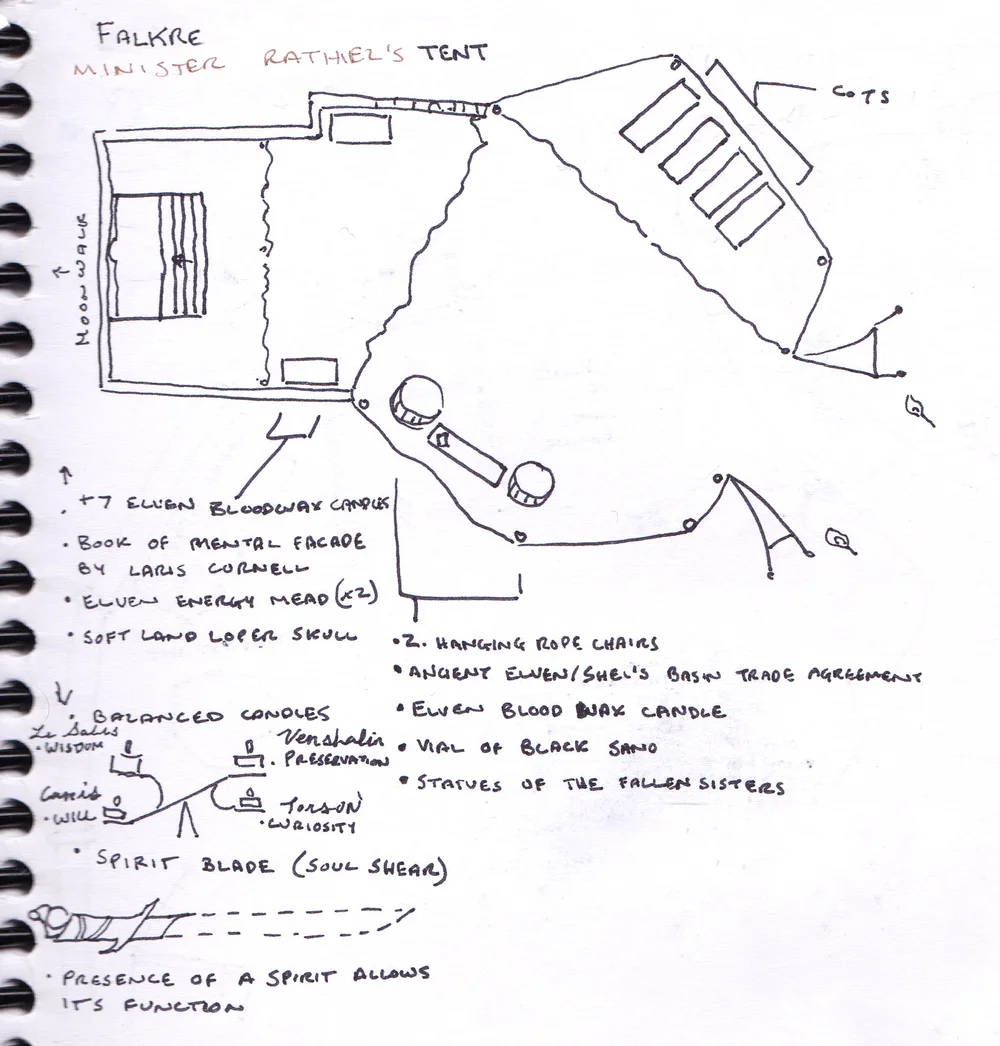 FALKRE
MINISTER RATHIEL'S TENT
COTS
MOONWALK
+7 ELVEN BLOODWAX CANDLES
• BOOK OF MENTAL FACADE
BY LARIS CORNELL
• ELVEN ENERGY MEAD (x2)
• SOFT LAND LOPER SKULL
• 2. HANGING ROPE CHAIRS
• ANCIENT ELVEN/SHEL'S BASIN TRADE AGREEMENT
• ELVEN BLOOD WAX CANDLE
• VIAL OF BLACK SAND
• STATUES OF THE FALLEN SISTERS
• BALANCED CANDLES
Le Salis
• WISDOM
Venshalin
• PRESERVATION
Canis
• WILL
Torson
• CURIOSITY
• SPIRIT BLADE (SOUL SHEAR)
• PRESENCE OF A SPIRIT ALLOWS
ITS FUNCTION